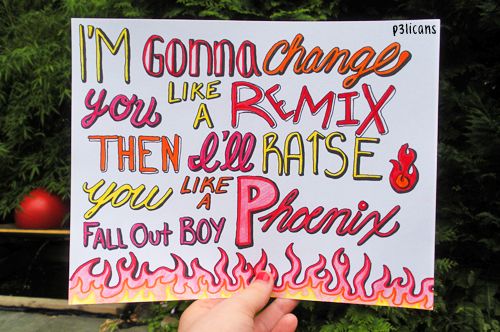 p3licans
I'M GONNA change
you LIKE A REMIX
THEN I'll RAISE
you LIKE A Phoenix
FALL OUT BOY